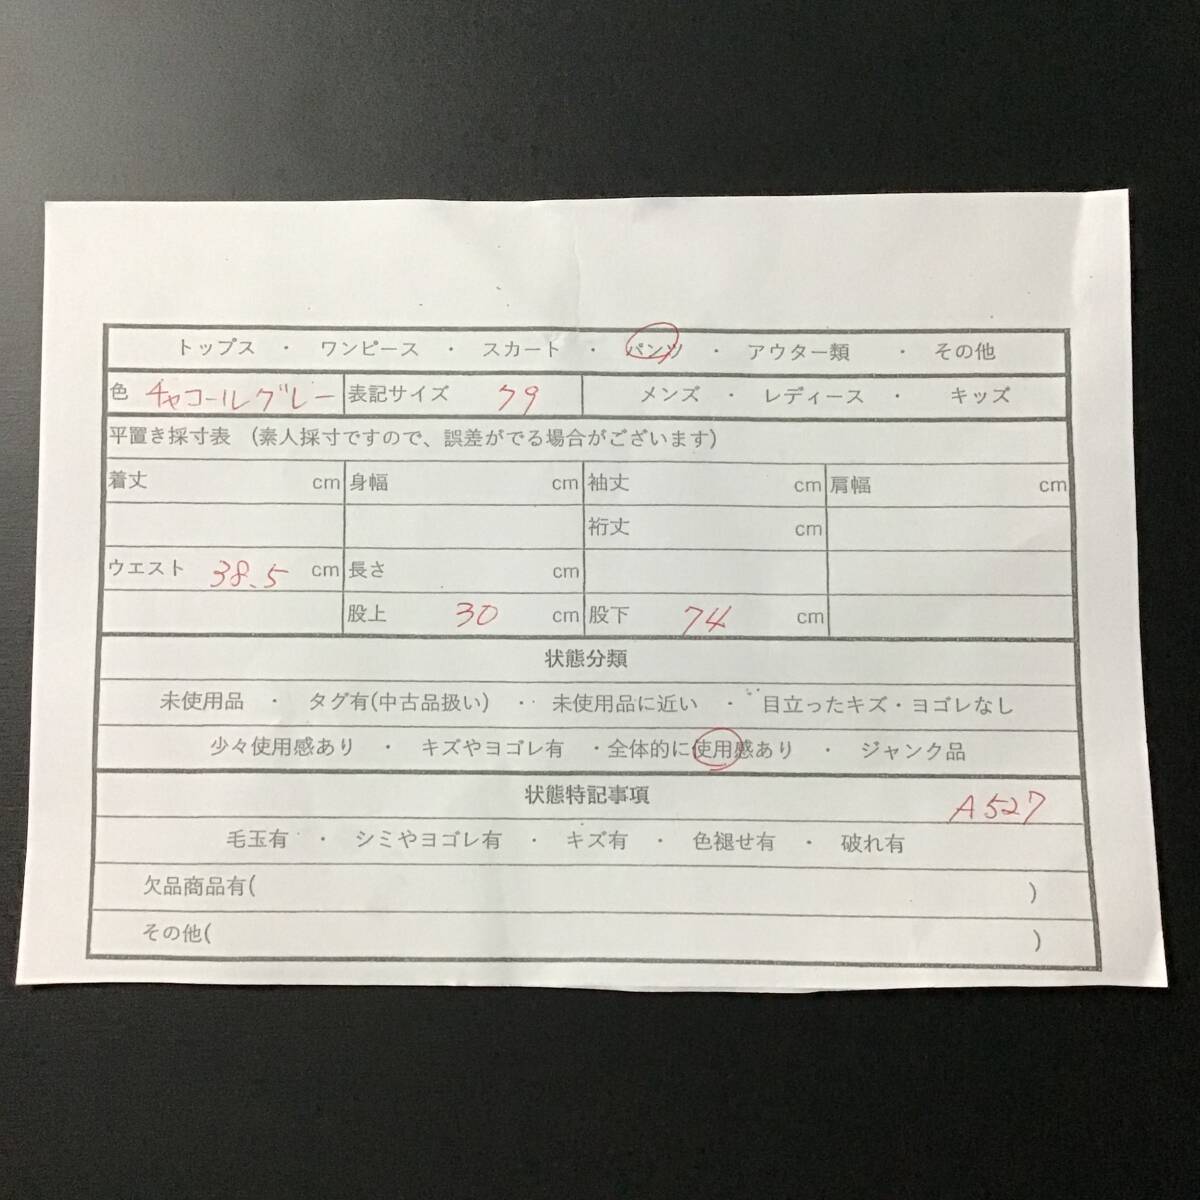 トップス ・ ワンピース ・ スカート ・ パンツ ・ アウター類 ・ その他
色 チャコールグレー 表記サイズ 79 メンズ ・ レディース ・ キッズ
平置き採寸表 (素人採寸ですので、誤差がでる場合がございます)
着丈 cm 身幅 cm 袖丈 cm 肩幅 cm
裄丈 cm
ウエスト 38.5 cm 長さ cm
股上 30 cm 股下 74 cm
状態分類
未使用品 ・ タグ有(中古品扱い) ・・ 未使用品に近い ・ 目立ったキズ・ヨゴレなし
少々使用感あり ・ キズやヨゴレ有 ・全体的に使用感あり ・ ジャンク品
状態特記事項 A527
毛玉有 ・ シミやヨゴレ有 ・ キズ有 ・ 色褪せ有 ・ 破れ有
欠品商品有( )
その他( )